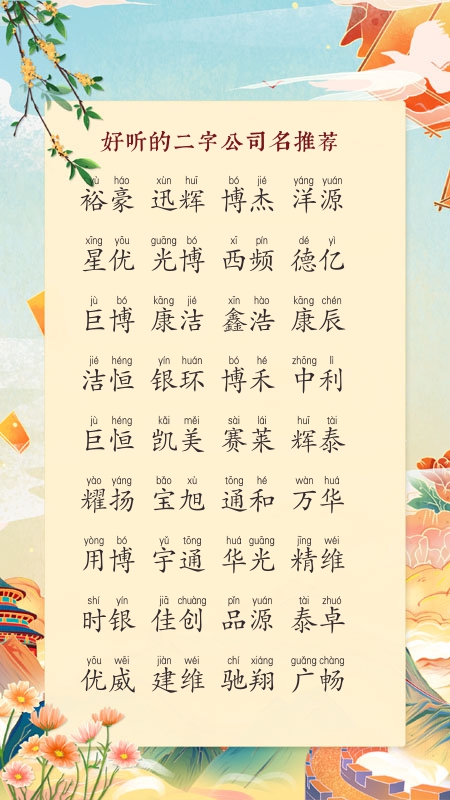 好听的二字公司名推荐
yù háo xùn huī bó jié yáng yuán
裕豪 迅辉 博杰 洋源
xīng yōu guāng bó xī pín dé yì
星优 光博 西频 德亿
jù bó kāng jié xīn hào kāng chén
巨博 康洁 鑫浩 康辰
jié héng yín huán bó hé zhōng lì
洁恒 银环 博禾 中利
jù héng kǎi měi sài lái huī tài
巨恒 凯美 赛莱 辉泰
yào yáng bǎo xù tōng hé wàn huá
耀扬 宝旭 通和 万华
yòng bó yǔ tōng huá guāng jīng wéi
用博 宇通 华光 精维
shí yín jiā chuàng pǐn yuán tài zhuó
时银 佳创 品源 泰卓
yōu wēi jiàn wéi chí xiáng guǎng chàng
优威 建维 驰翔 广畅